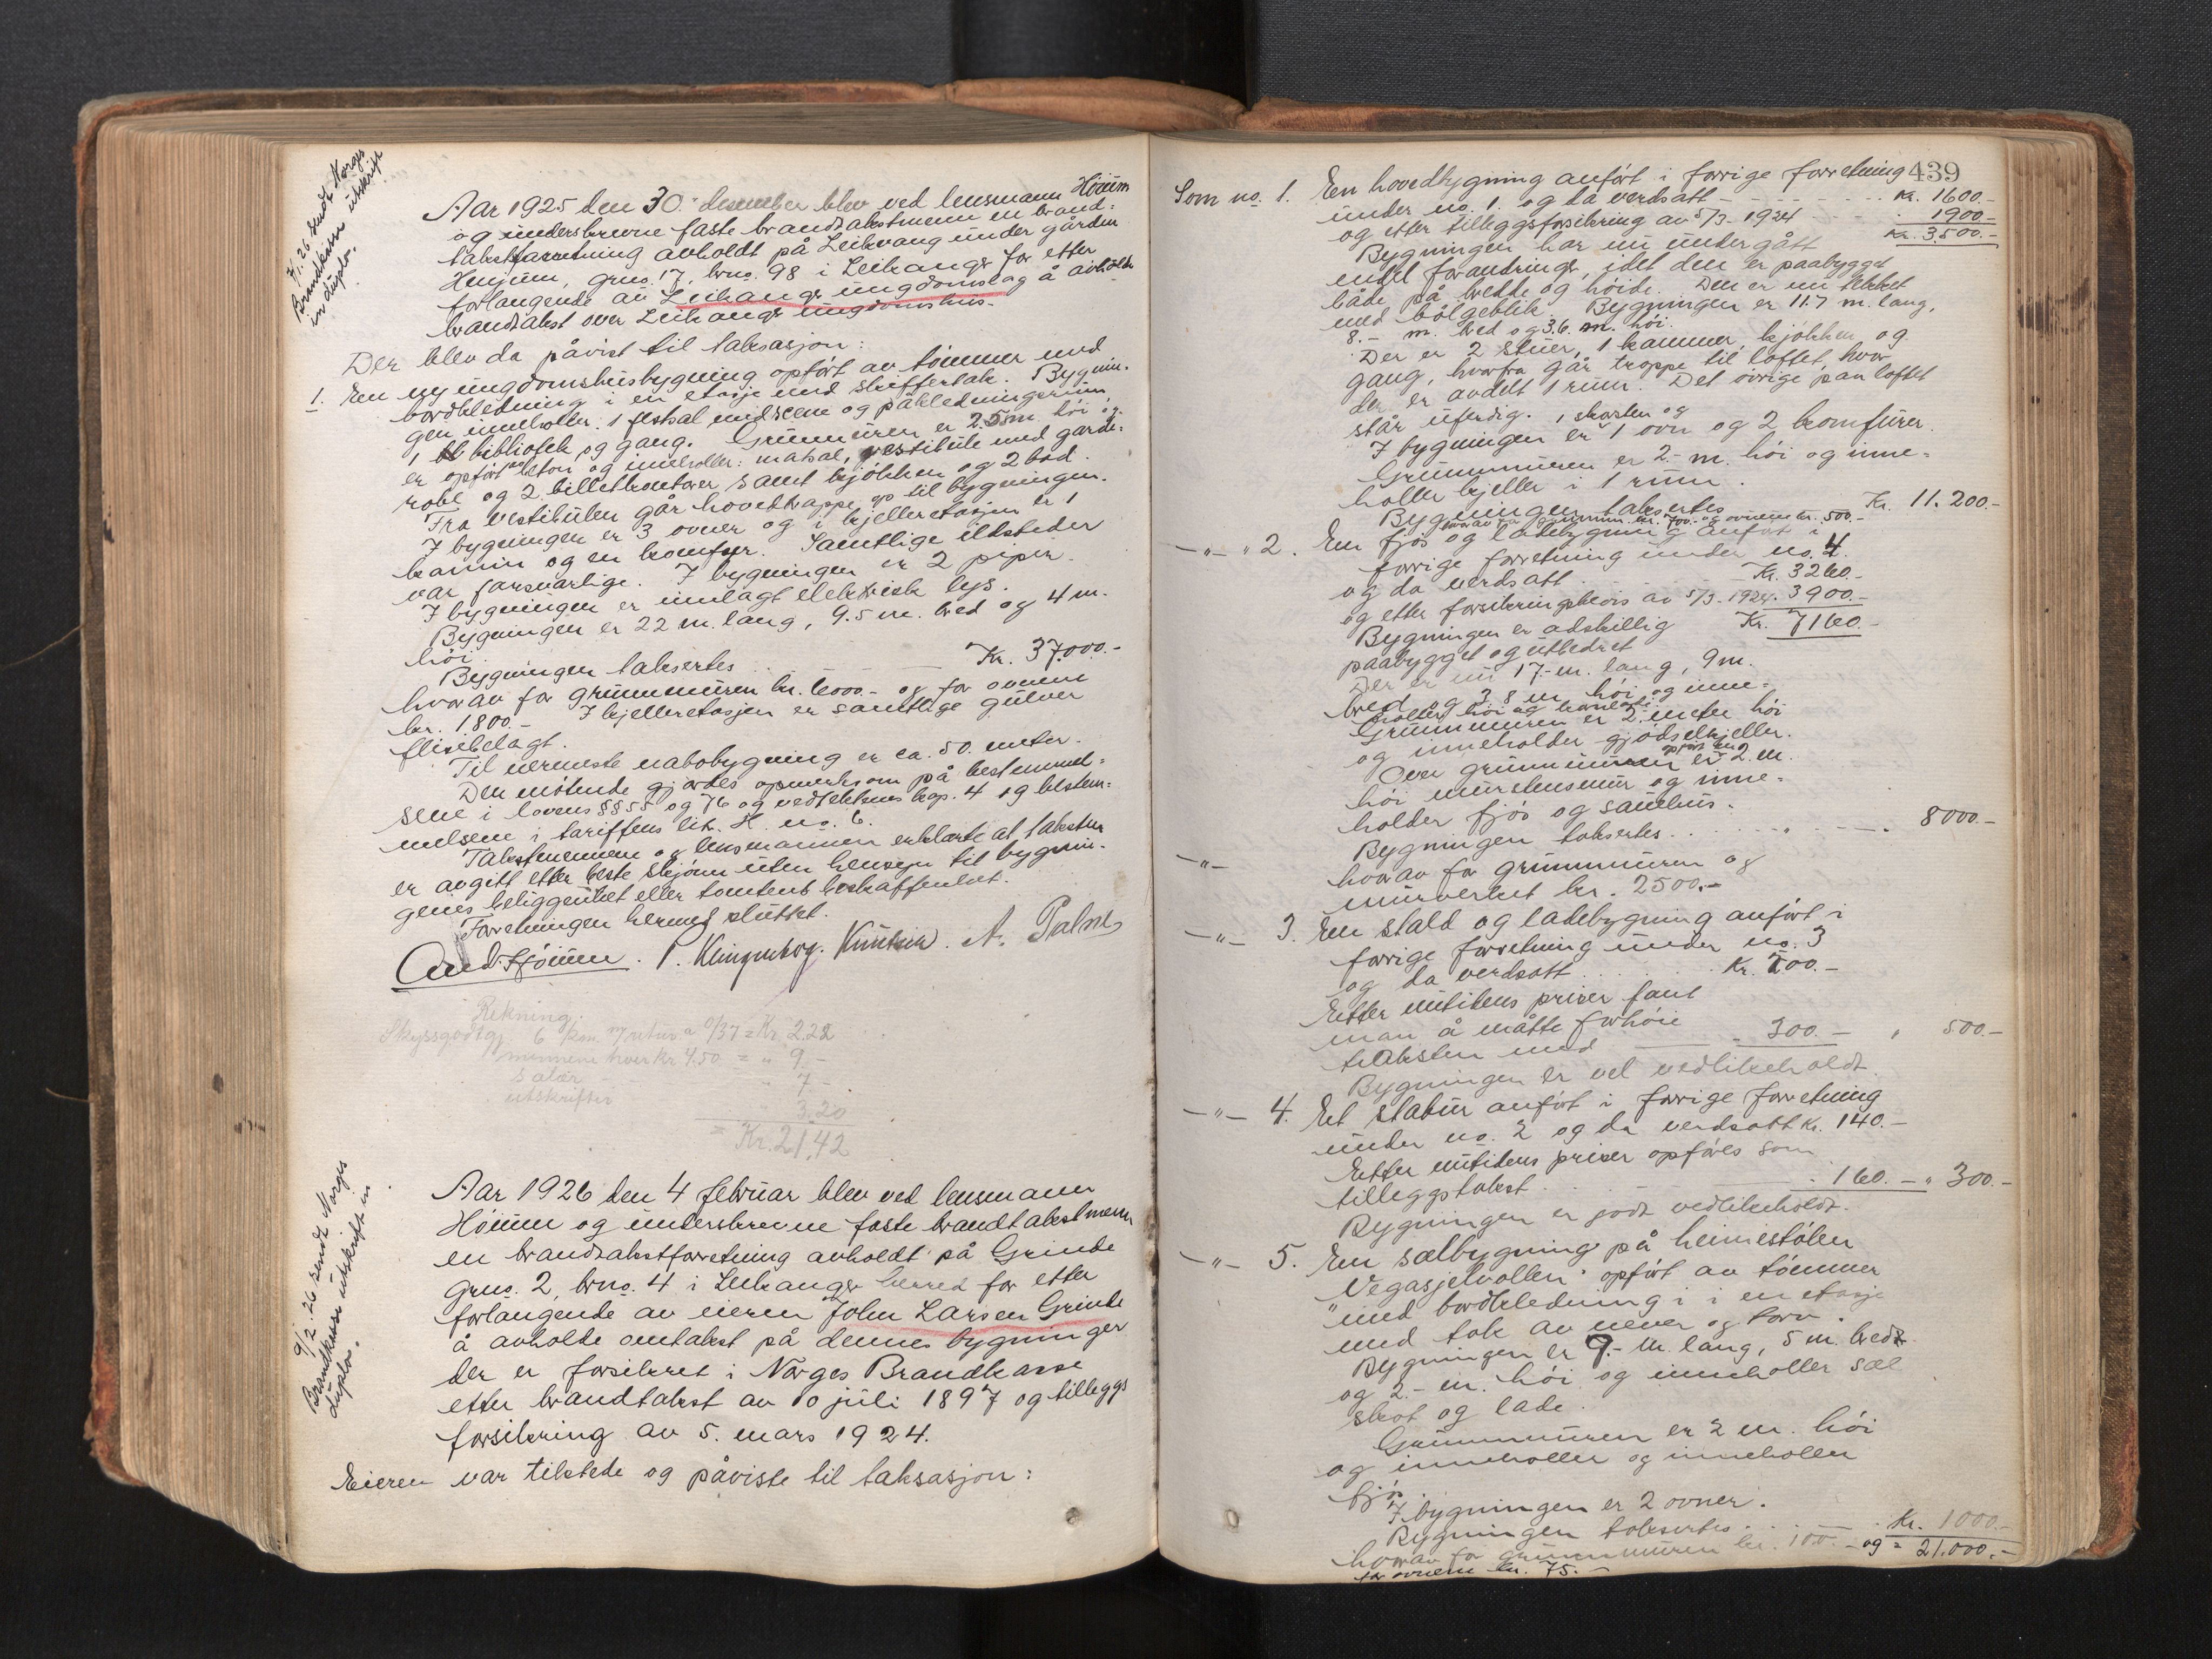 7/1. 26 sendt Norges
Brandkasse utskrift
in duplo.
Aar 1925 den 30. desember blev ved lensmann Höium
og underskrevne faste brandtakstmenn en brand-
takstforretning avholdt på Leikvang under gården
Henjum, gno. 17, brno. 98 i Leikanger for etter
forlangende av Leikanger ungdomslag å avholde
brandtakst over Leikanger ungdomshus.
Der blev da påvist til taksasjon:
1. En ny ungdomshusbygning opført av tömmer med
bordkledning i en etasje med skiffertak. Bygnin-
gen inneholder: 1 festsal med scene og påkledningsrum,
1 bibliotek og gang. Grunnmuren er 2.5 m. höi og
er opfört av beton og inneholder: matsal, vestibule med garde-
robe og 2 billetkontorer samt kjökken og 2 bad.
Fra vestibulen går hovedtrappe op til bygningen.
I bygningen er 3 ovner og i kjelleretasjen er 1
kamin og en komfyr. Samtlige ildsteder
var forsvarlige. I bygningen er 2 piper.
I bygningen er innlagt elektrisk lys.
Bygningen er 22 m. lang, 9.5 m. bred og 4 m.
höi.
Bygningen takseres Kr. 37.000.-
hvorav for grunnmuren kr. 6000.- og for ovnene
kr. 1.800.- I kjelleretasjen er samtlige gulver
flisebelagt.
Til nermeste nabobygning er ca. 50 meter.
Den mötende gjordes opmerksom på bestemmel-
sene i lovens §§ 55 og 76 og vedtektenes kap. 4 og bestem-
melsene i tariffens lit. H. no. 6.
Takstmennene og lensmannen erklærte at taksten
er avgitt etter beste skjönn uten hensyn til bygnin-
genes beliggenhet eller tomtens beskaffenhet.
Forretningen hermed sluttet.
And. Höium. P. Klingenberg. Knutsen. A. Palm
Rekning.
Skyssgodtgj. 6 km. m/retur a 0/37 = Kr. 2.22
mennene hver kr. 4.50 = " 9.-
Salær " 7.-
utskrifter " 3.20
= Kr. 21,42
9/2. 26 sendt Norges
Brandkasse utskrift in
duplo.
Aar 1926 den 4 februar blev ved lensmann
Höium og underskrevne faste brandtakstmenn
en brandtakstforretning avholdt på Grinde
gno. 2, brno. 4 i Leikanger herred for etter
forlangende av eieren John Larsen Grinde
å avholde omtakst på dennes bygninger
der er forsikret i Norges Brandkasse
etter brandtakst av 10 juli 1897 og tilleggs
forsikring av 5. mars 1924.
Eieren var tilstede og påviste til taksasjon:
439
Som no. 1. En hovedbygning anfört i forrige forretning
under no. 1. og da verdsatt Kr. 1600.-
og etter tilleggsforsikring av 5/3 1924 1900.-
Kr. 3500.-
Bygningen har nu undergått
endel forandringer, idet den er paabygget
både på bredde og höide. Den er nu tekket
med bölgeblik. Bygningen er 11.7 m. lang,
8.- m. bred og 3.6. m. höi.
Der er 2 stuer, 1 kammer, kjökken og
gang, hvorfra går trappe til loftet, hvor
der er avdelt 1 rum. Det övrige paa loftet
står uferdig. 1 skorsten og
I bygningen er 1 ovn og 2 komfurer.
Grunnmuren er 2.- m. höi og inne-
holder kjeller i 1 rum.
Bygningen takseres Kr. 11.200.-
hvorav for grunnm. kr. 700.- og ovnene kr. 500.-
-"- " 2. En fjös og ladebygning anfört i
forrige forretning under no. 4.
og da verdsatt Kr. 3260.-
og etter forsikringsbevis av 5/3. 1924. 3900.-
Kr. 7160.-
Bygningen er adskillig
paabygget og utbedret
Der er nu 17.- m. lang, 9 m.
bred og 3.8 m. höi og inne-
holder höi og kornlade.
Grunnmuren er 2. meter höi
og inneholder gjödselkjeller.
Over grunnmuren er opfört en 2 m.
höi murstensmur og inne-
holder fjös og sauehus.
Bygningen takseres 8000.-
-"- hvorav for grunnmuren og
murverket kr. 2500.-
-"- 3. En stald og ladebygning anfört i
forrige forretning under no. 3
og da verdsatt Kr. 200.-
Etter nutidens priser fant
man å måtte forhöie
taksten med 300.- " 500.-
Bygningen er vel vedlikeholdt.
-"- 4. Et stabur anfört i forrige forretning
under no. 2 og da verdsatt kr. 140.-
Etter nutidens priser opföres som
tilleggstakst 160.- " 300.-
Bygningen er godt vedlikeholdt.
-"- 5. En sælbygning på heimestölen
"Vegasjelvollen" opfört av tömmer
med bordkledning i i en etasje
med tak av never og torv.
Bygningen er 9.- m. lang, 5 m. bred
og 2.- m. höi og inneholder sæl
skot og lade.
Grunnmuren er 2 m. höi
og inneholder og inneholder
fjös.
I bygningen er 2 ovner.
Bygningen takseres Kr. 1000.-
hvorav for grunnmuren kr. 100.- og = 21.000.-
for ovnene kr. 75.-